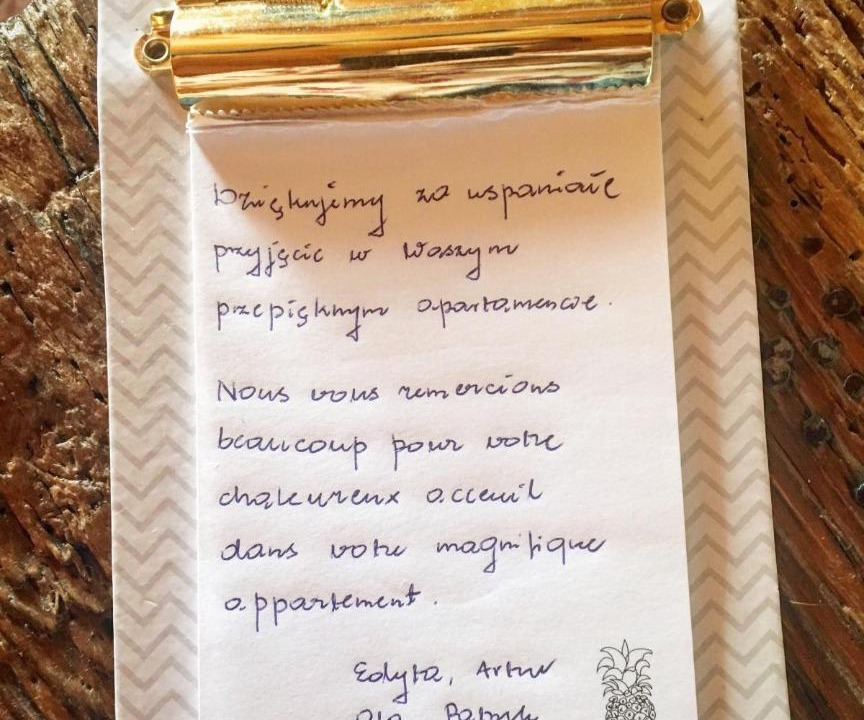 Dziękujemy za wspaniałe
przyjęcie w Waszym
przepięknym apartamencie.
Nous vous remercions
beaucoup pour votre
chaleureux acceuil
dans votre magnifique
appartement.
Edyta, Artur